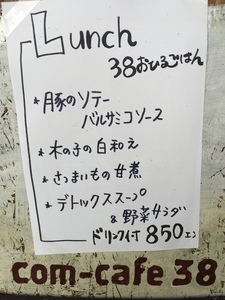 Lunch
38おひるごはん
*豚のソテー
バルサミコソース
*木の子の白和え
*さつまいもの甘煮
*デトックススープ
&野菜サラダ
ドリンク付850エン
com-cafe 38